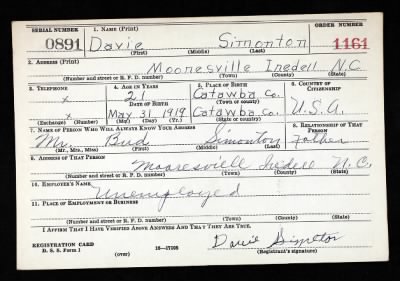 SERIAL NUMBER 1. NAME (Print) ORDER NUMBER
0891 Davie Simonton 1161
(First) (Middle) (Last)
2. ADDRESS (Print)
Mooresville Iredell N.C.
(Number and street or R. F. D. number) (Town) (County) (State)
3. TELEPHONE 4. AGE IN YEARS 5. PLACE OF BIRTH 6. COUNTRY OF CITIZENSHIP
x 21 Catawba Co.
DATE OF BIRTH (Town or county)
x May 31 1919 Catawba Co. U.S.A.
(Exchange) (Number) (Mo.) (Day) (Yr.) (State or country)
7. NAME OF PERSON WHO WILL ALWAYS KNOW YOUR ADDRESS 8. RELATIONSHIP OF THAT PERSON
Mr. Bud Simonton Father
(Mr., Mrs., Miss) (First) (Middle) (Last)
9. ADDRESS OF THAT PERSON
Mooresville Iredell N.C.
(Number and street or R. F. D. number) (Town) (County) (State)
10. EMPLOYER'S NAME
Unemployed
11. PLACE OF EMPLOYMENT OR BUSINESS
(Number and street or R. F. D. number) (Town) (County) (State)
I AFFIRM THAT I HAVE VERIFIED ABOVE ANSWERS AND THAT THEY ARE TRUE.
REGISTRATION CARD Davie Simonton
D. S. S. Form 1 (over) 16—17105 (Registrant's signature)